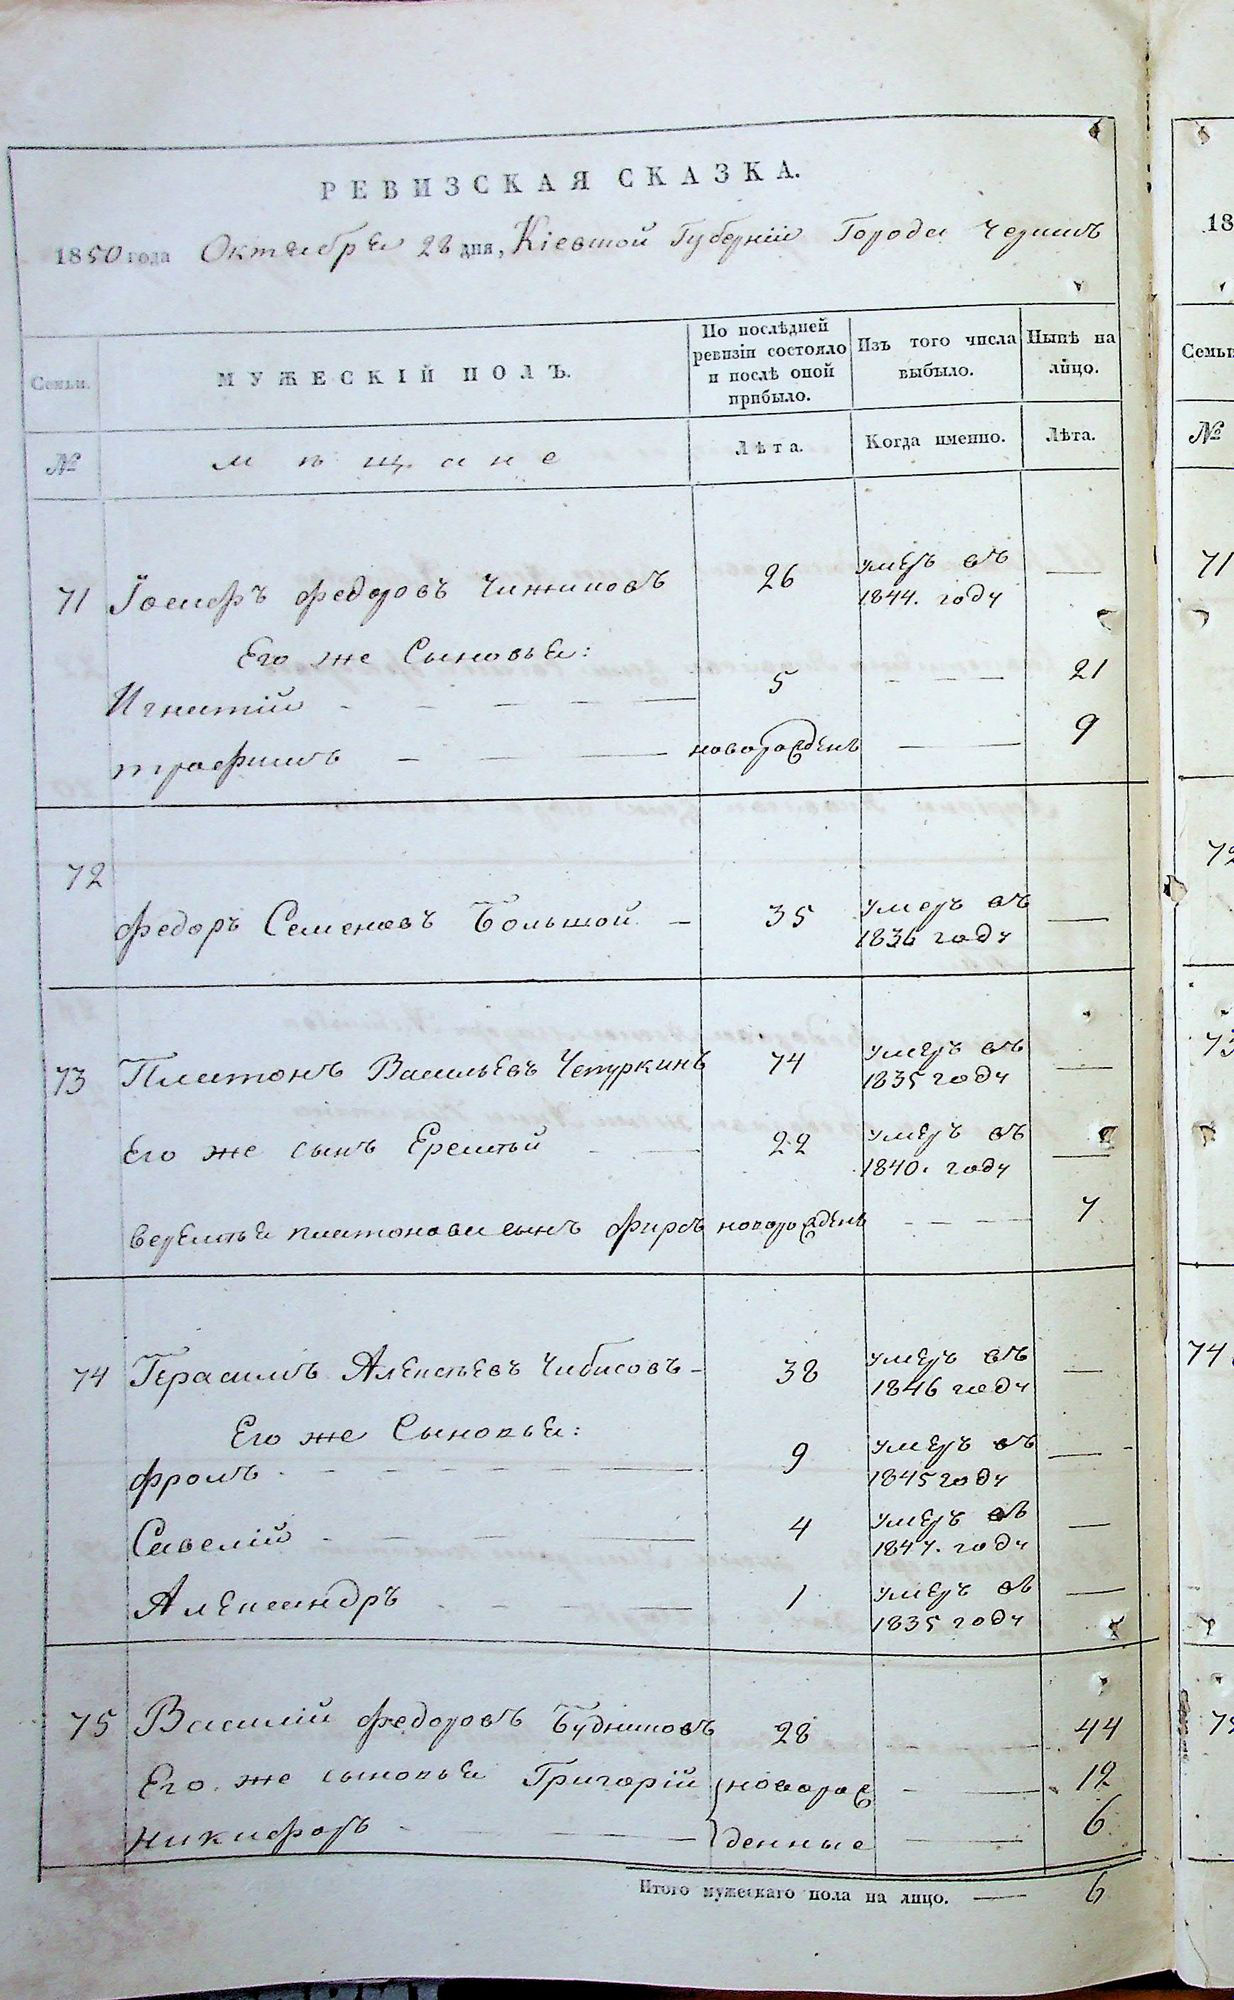 РЕВИЗСКАЯ СКАЗКА.
1850 года Октября 28 дня, Кіевской Губерніи Города
Семьи.
МУЖЕСКІЙ ПОЛЪ.
По послѣдней
ревизіи состояло
и послѣ оной
прибыло.
Изъ того числа
выбыло.
Нынѣ на
лицо.
№
мѣщане
Лѣта.
Когда именно.
Лѣта.
71 Іосифъ Федоровъ Чижиковъ 26 умеръ въ —
1844. году
Его же Сыновья:
Игнатій — 5 — 21
трофимъ — новорожденъ — 9
72
Федоръ Семеновъ Большой — 35 умеръ въ —
1836 году
73 Платонъ Васильевъ Чепуркинъ 74 умеръ въ —
1835 году
Его же сынъ Еремѣй — 22 умеръ въ —
1840. году
Веремѣя платонова сынъ Фирсъ новорожденъ — 7
74 Герасимъ Алексѣевъ Чибисовъ — 38 умеръ въ —
1846 году
Его же Сыновья:
фролъ — 9 умеръ въ —
1845 году
Савелій — 4 умеръ въ —
1847. году
Александръ — 1 умеръ въ —
1835 году
75 Василій Федоровъ Будниковъ 28 — 44
Его же сыновья Григорій новорож — 12
Никифоръ — денные — 6
Итого мужескаго пола на лицо. — 6
18
Семьи
№
71
72
73
74
75